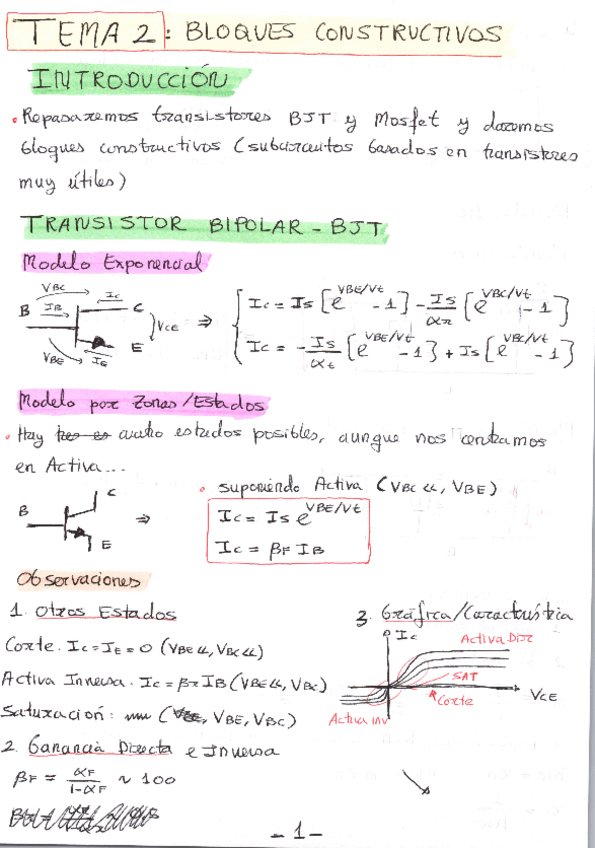 TEMA 2: BLOQUES CONSTRUCTIVOS
INTRODUCCIÓN
• Repasaremos transistores BJT y Mosfet y daremos
bloques constructivos (subcircuitos basados en transistores
muy útiles)
TRANSISTOR BIPOLAR - BJT
Modelo Exponencial
VBC
IC
B IB C
VCE ⇒
VBE IE E
IC = IS [e^VBE/Vt - 1] - IS/αr [e^VBC/Vt - 1]
IC = - IS/αt [e^VBE/Vt - 1] + IS [e^VBC/Vt - 1]
Modelo por Zonas/Estados
• Hay tres es cuatro estados posibles, aunque nos centramos
en Activa...
B C E ⇒
• suponiendo Activa (VBC≪, VBE)
IC = IS e^VBE/Vt
IC = βF IB
Observaciones
1. Otros Estados
Corte. IC = IE = 0 (VBE≪, VBC≪)
Activa Inversa. IC = βr IB (VBE≪, VBC)
Saturación: (VBE, VBC)
2. Ganancia Directa e Inversa
βF = αF/1-αF ~ 100
3. Gráfica/Característica
IC
Activa Dir
SAT
Corte
VCE
Activa inv
- 1 -